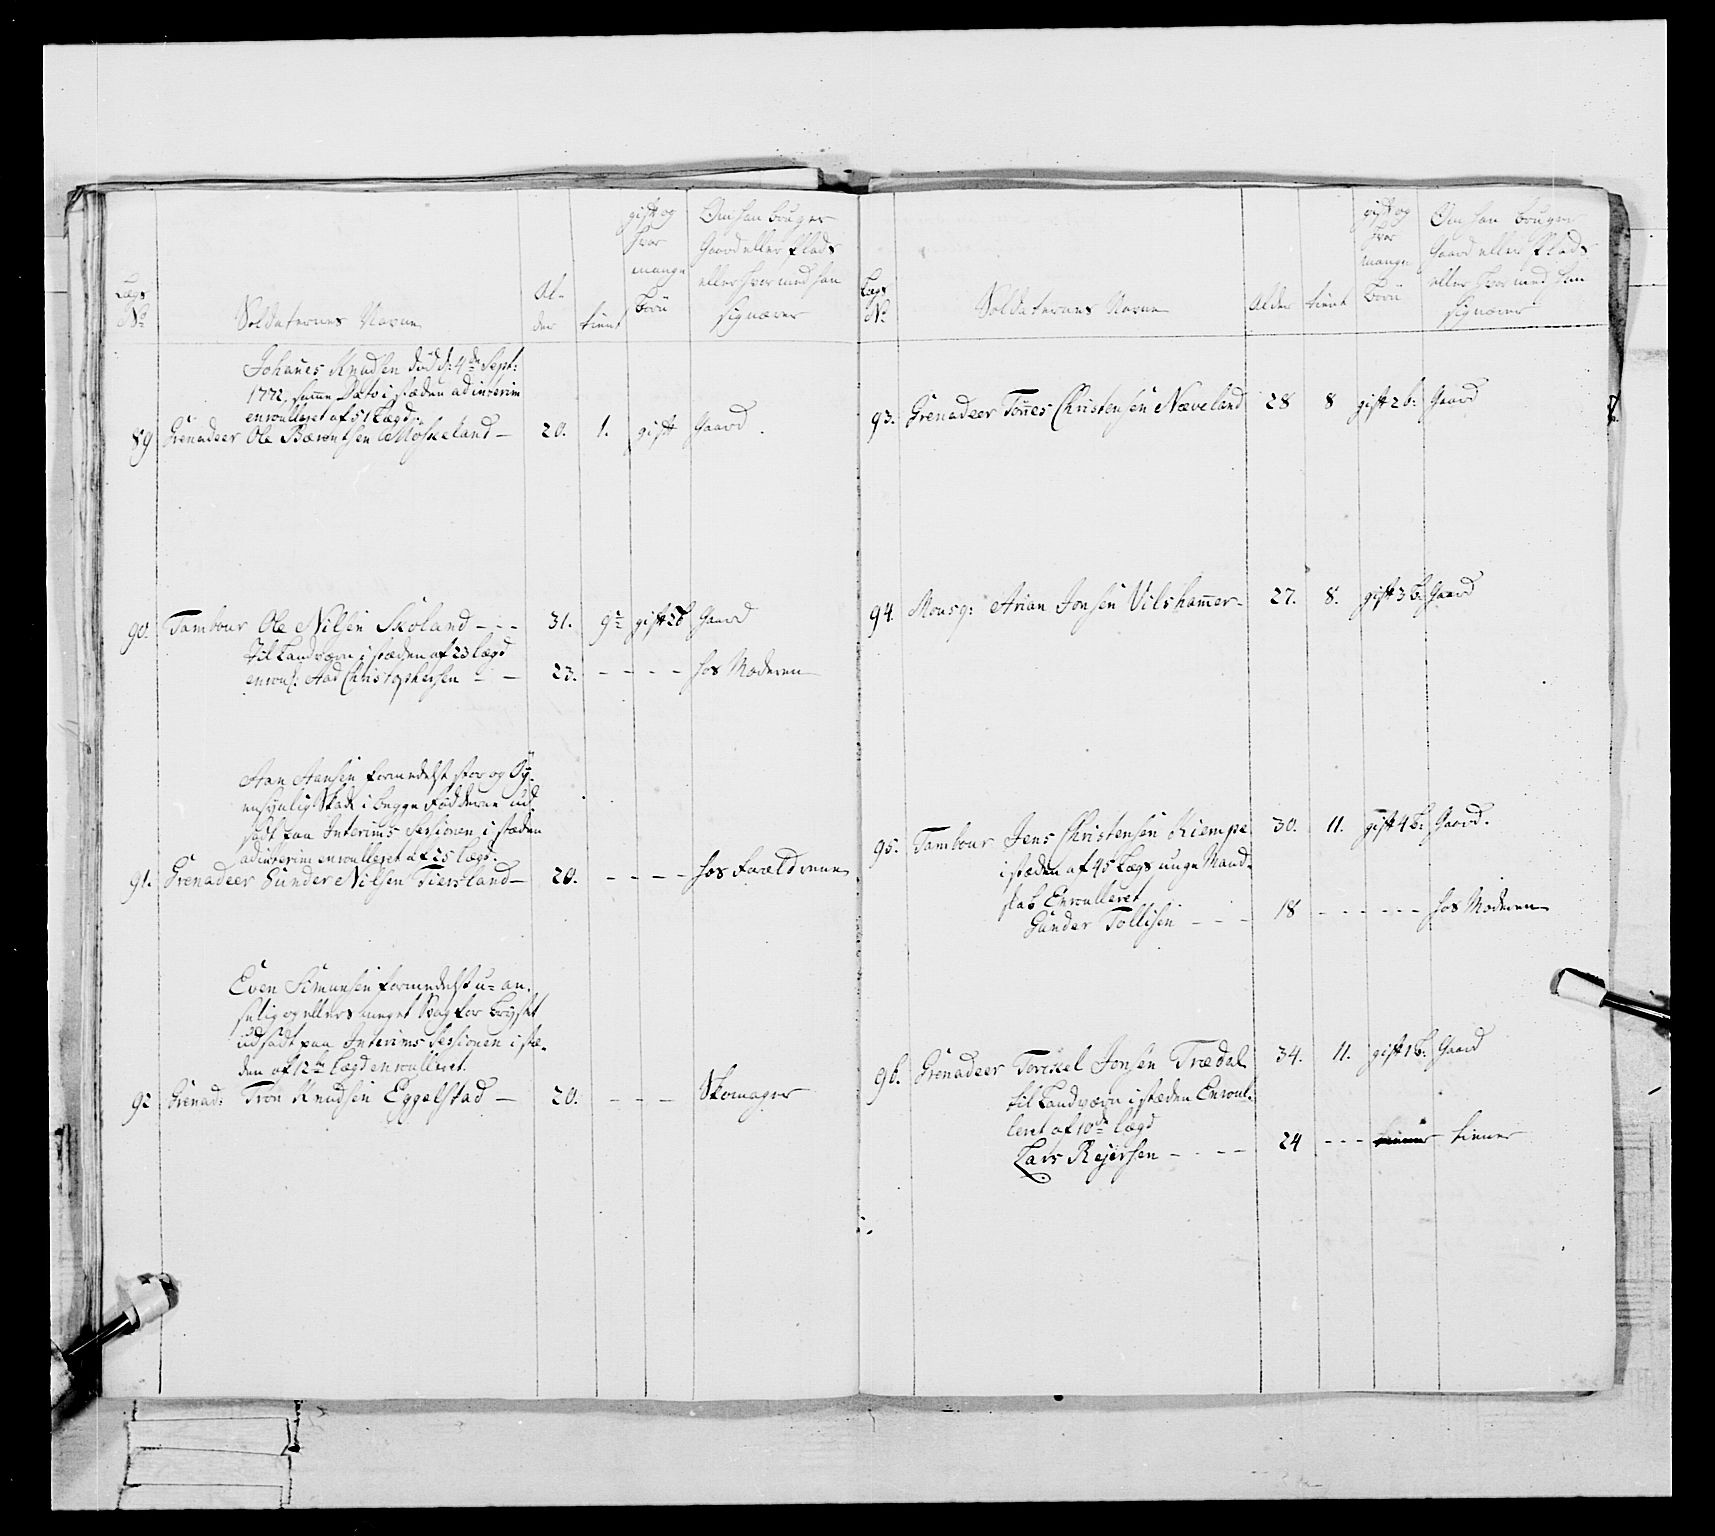 Lægs
No
Soldaternes Navne
Al-
der
tient
gift og
hvor
mange
Börn
Om han bruger
Gaard eller Plads
eller hvor med han
sig nærer
Johanes Knudsen död d: 4de Sept:
1772, samme Dato i stæden ad interim
enroulleret af 51 Lægd:
89 Grenadeer Ole Bærentsen Moskeland — 20. 1. gift Gaard.
90. Tambour Ole Nilsen Skoland - - - 31. 9 gift 2b Gaard
til Landværn i stæden af 23 lægd
enroul: Aad Christophersen - — 23. - - - - hos Moderen
Aan Aansen formedelst stor og Öy-
ensynlig Skade i begge Födderne ud
sadt paa Interims Sessionen i stæden
ad interim enroulleret af 25 lægd.
91. Grenadeer Gunder Nilsen Tiersland — 20. - - - - hos Forældrene
Even Simensen formedelst u- an-
selig og ellers meget Svag for Brystet
udsadt paa Interims Sessionen i stæ-
den af 12te Lægd enroulleret.
92 Grenad: Tron Knudsen Eggelstad — 20. - - - Skomager
Lægs
No
Soldaternes Navne
Alder
tient
gift og
hvor
mange
Börn
Om han bruger
Gaard eller Plads
eller hvor med han
sig nærer
93. Grenadeer Tönes Christensen Næveland 28 8 gift 2b: Gaard
94. Mousq: Arian Jonsen Vilshamer- 27. 8. gift 3 b: Gaard
95. Tambour Jens Christensen Kiempe 30. 11. gift 4 b: Gaard.
i stæden af 45 Lægs unge Mand-
skab Enroulleret
Gunder Tollisen - - - 18 - - - - - - hos Moderen
96. Grenadeer Torkel Jonsen Trædal 34. 11. gift 1 b: Gaard
til Landværn i stæden Enroul-
leret af 10de lægd
Lars Rejersen - - - - 24 - - - tiener tiener